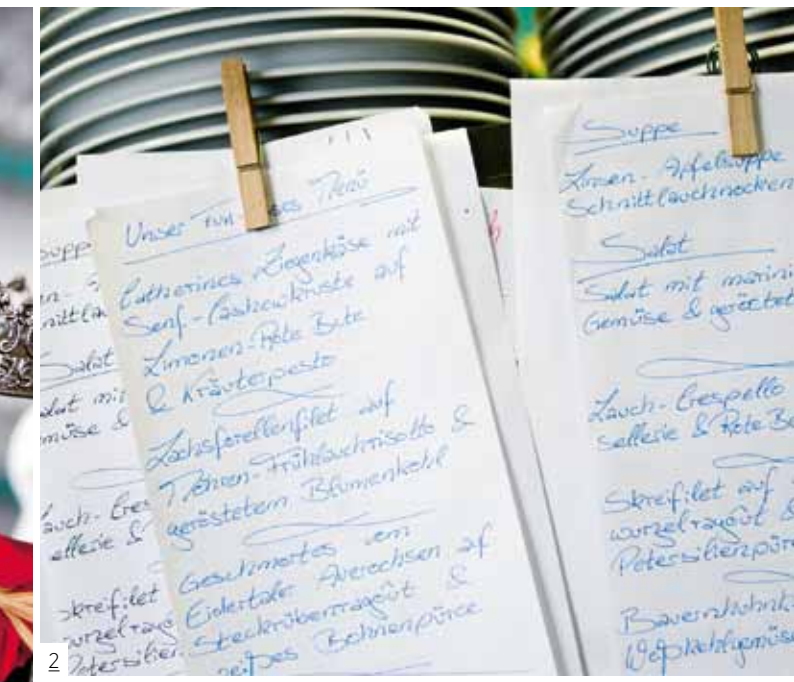 Supp
nittla
Salat
lat mi
müse &
auch- Cres
ellerie &
skreifilet
wurzelrag
Petersilien
Unser Fün es Menü
Catherines Ziegenkäse mit
Senf-Cashewkruste auf
Limonen-Rote Bete
& Kräuterpesto
Lachsforellenfilet auf
Möhren-Frühlauchrisotto &
geröstetem Blumenkohl
Geschmortes vom
Eidertaler Auerochsen auf
Steckrübenragoût &
weißes Bohnenpüree
Suppe
Linsen-Apfelsuppe
Schnittlauchnocken
Salat
Salat mit marini
Gemüse & geröstet
Lauch-Crespello
sellerie & Rote Be
Skreifilet auf
wurzelragoût &
Petersilienpüre
Bauernhuhn
Weißkohlgemüse
2